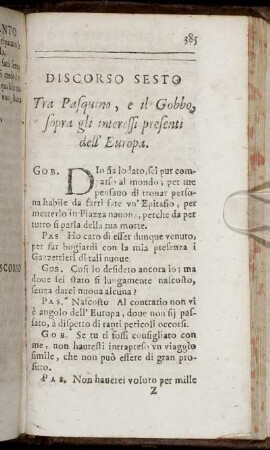 385
DISCORSO SESTO
Tra Pasquino, e il Gobbo,
sopra gli interessi presenti
dell'Europa.
GOB. DIo sia lodato, sei pur com-
parso al mondo; per me
pensauo di trouar perso-
na habile da farti fare vn'Epitafio, per
metterlo in Piazza nauona, perche da per
tutto si parla della tua morte.
PAS. Ho caro di esser dunque venuto,
per far bugiardi con la mia presenza i
Gazzettieri di tali nuoue.
GOB. Cosi lo desidero ancora io; ma
doue sei stato sì lungamente nascosto,
senza darci nuoua alcuna?
PAS. Nascosto? Al contrario non vi
è angolo dell'Europa, doue non sij pas-
sato, à dispetto di tanti pericoli occorsi.
GOB. Se tu ti fossi consigliato con
me, non hauresti intrapreso vn viaggio
simile, che non può essere di gran pro-
fitto.
PAS. Non hauerei voluto per mille
Z